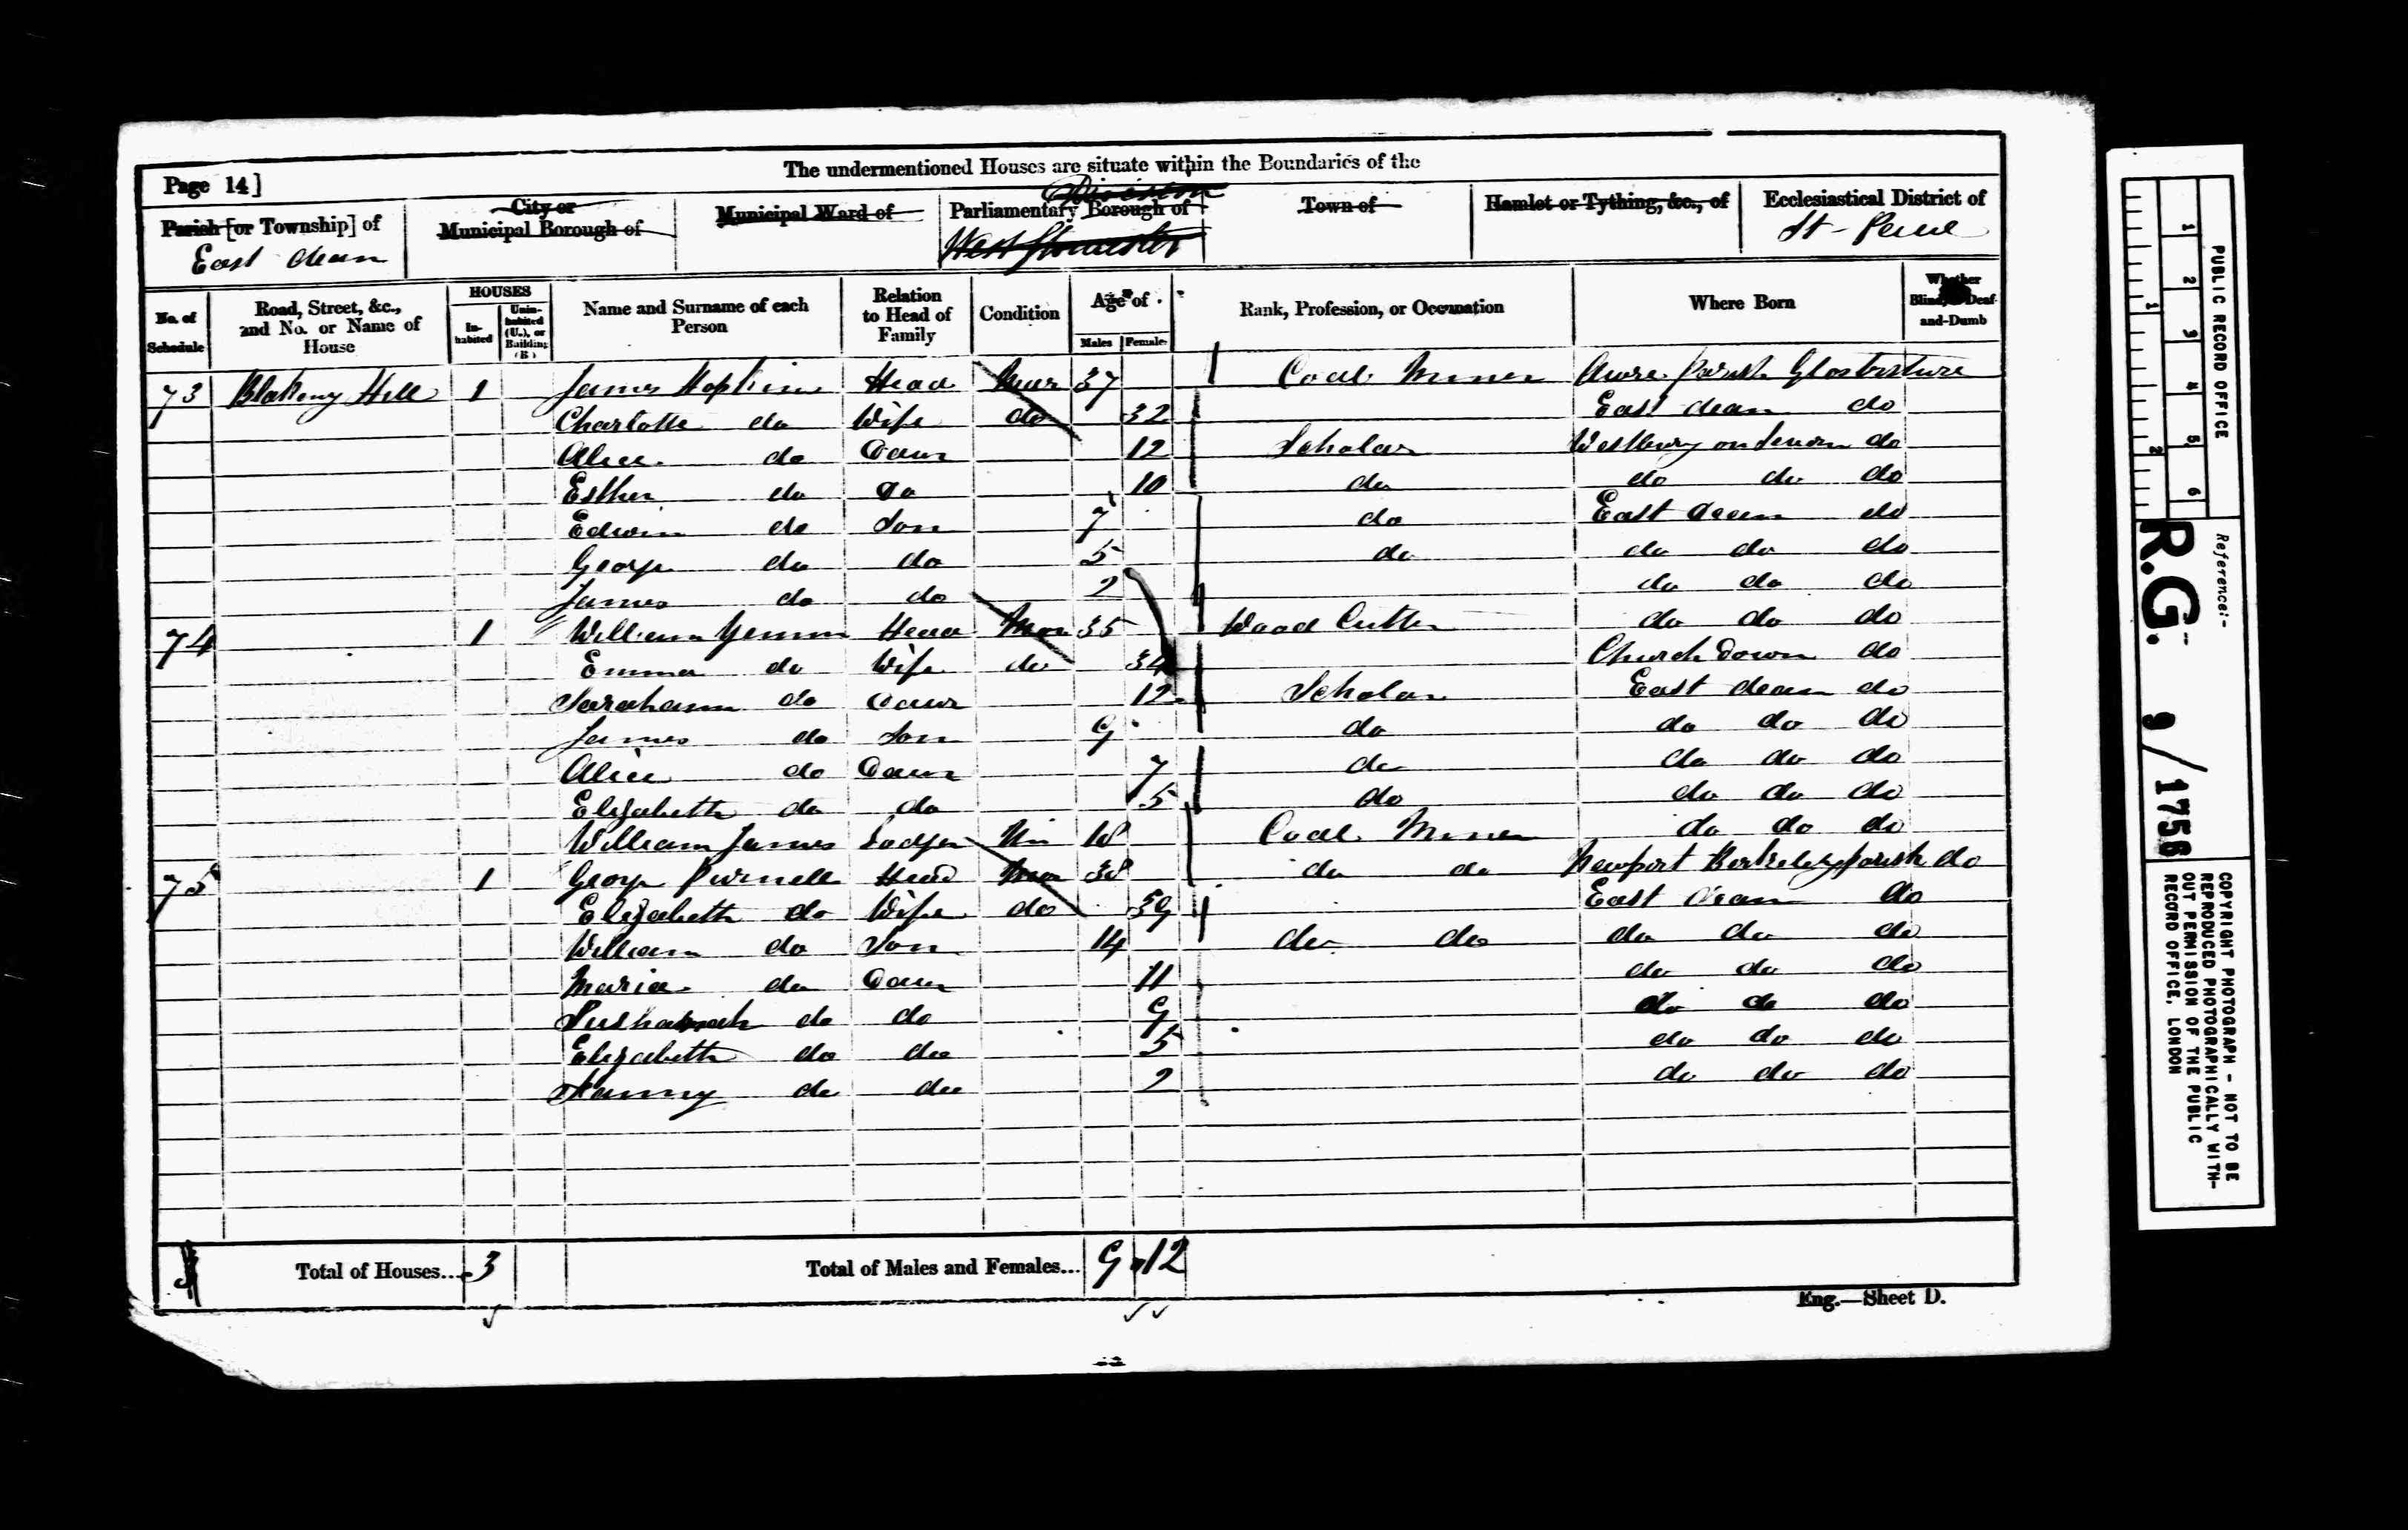 The undermentioned Houses are situate within the Boundaries of the
Page 14]
Parish [or Township] of East dean
City or Municipal Borough of
Municipal Ward of
Division
Parliamentary Borough of West Gloucester
Town of
Hamlet or Tything, &c., of
Ecclesiastical District of St - Paul
No. of Schedule
Road, Street, &c., and No. or Name of House
HOUSES
In-habited
Unin-habited (U.), or Building (B)
Name and Surname of each Person
Relation to Head of Family
Condition
Age of
Males
Females
Rank, Profession, or Occupation
Where Born
Whether Blind, or Deaf-and-Dumb
73 Blakeny Hill 1 James Hopkins Head Mar 37 Coal Miner Awre Parish Glostershire
Charlotte do Wife do 32 East dean do
Alice do Daur 12 Scholar Westbury on Severn do
Esther do Do 10 do do do do
Edwin do Son 7 do East dean do
George do do 5 do do do do
James do do 2 do do do
74 1 William Head Mar 35 Wood Cutter do do do
Emma do Wife do 34 Church down do
Sarahann do Daur 12 Scholar East dean do
James do Son 9 do do do do
Alice do Daur 7 do do do do
Elizabeth do do 5 do do do do
William James Lodger Un 18 Coal Miner do do do
75 1 George Purnell Head Mar 38 do do Newport Berkeley parish do
Elizabeth do Wife do 39 East dean do
William do Son 14 do do do do do
Maria do Daur 11 do do do
do do 9 do do do
Elizabeth do do 5 do do do
Fanny do do 2 do do do
Total of Houses... 3
Total of Males and Females... 9 12
Eng.—Sheet D.
PUBLIC RECORD OFFICE
1 2 3 4 5 6
1 2
Reference:-
R.G. 9/1756
COPYRIGHT PHOTOGRAPH - NOT TO BE
REPRODUCED PHOTOGRAPHICALLY WITH-
OUT PERMISSION OF THE PUBLIC
RECORD OFFICE, LONDON